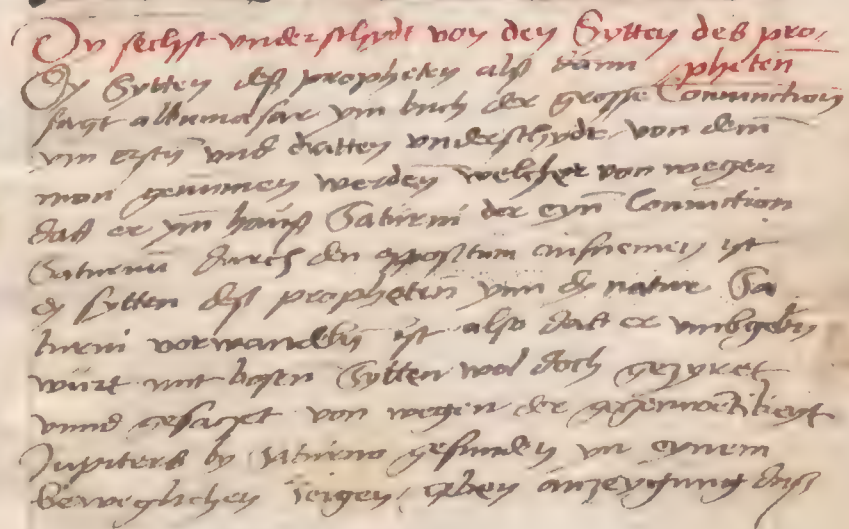 Dy sechst underschydt von den Sytten des pro-
pheten
Dy Sytten deß propheten alß dann
sagt albumasar ym buch der grosse Coniunction
ym ersten und dritten underschyde von dem
mon genumen werden welcher von wegen
daß er ym hauß Saturni der eyn Coniunction
Saturnu durch den oppositum ist
dy sytten deß propheten ynn dy natur Sa
turni vorwandeln ist also daß er umbgeben
würt mit bosen Sytten wol doch gezyret
unnd von wegen der gegenwertikeyt
Jupiters by Saturno gefunden yn eynem
beweglichen zeigen, geben anzeygung daß